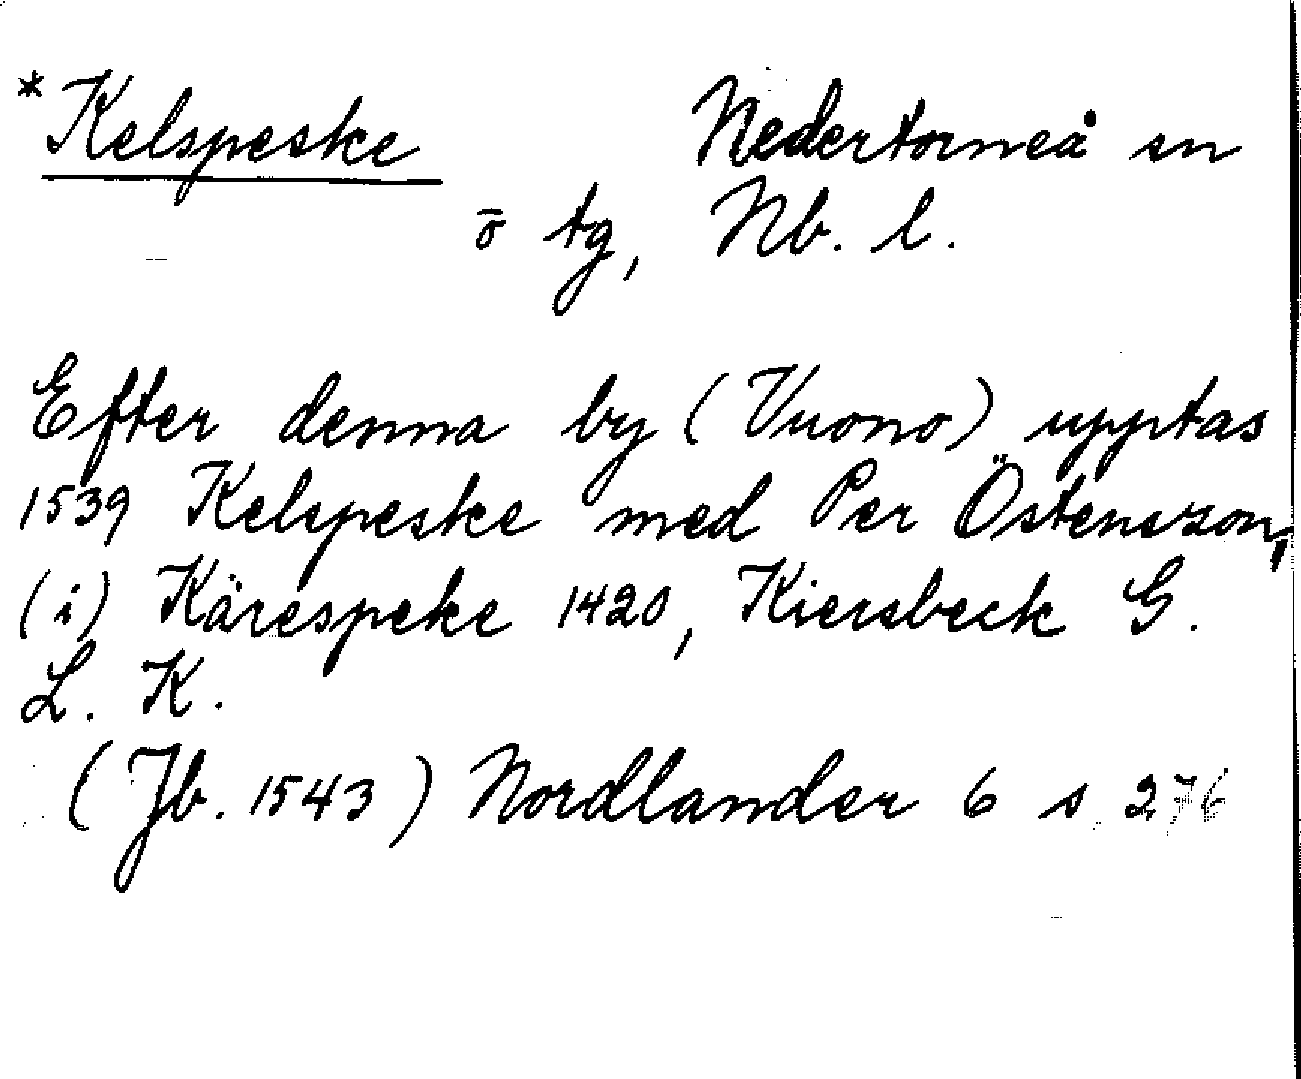 *Kelspeske Nedertorneå sn
ō tg, Nb. l.
Efter denna by (Vuono) upptas
1539 Kelspeske med Per Östensson,
(i) Kärespeke 1420, Kiersbeck G.
L. K.
(Jb. 1543) Nordlander 6 s 276